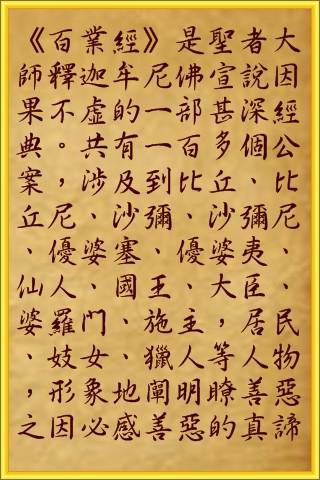 《百業經》是聖者大
師釋迦牟尼佛宣說因
果不虛的一部甚深經
典。共有一百多個公
案，涉及到比丘、比
丘尼、沙彌、沙彌尼
、優婆塞、優婆夷、
仙人、國王、大臣、
婆羅門、施主，居民
、妓女、獵人等人物
，形象地闡明瞭善惡
之因必感善惡的真諦